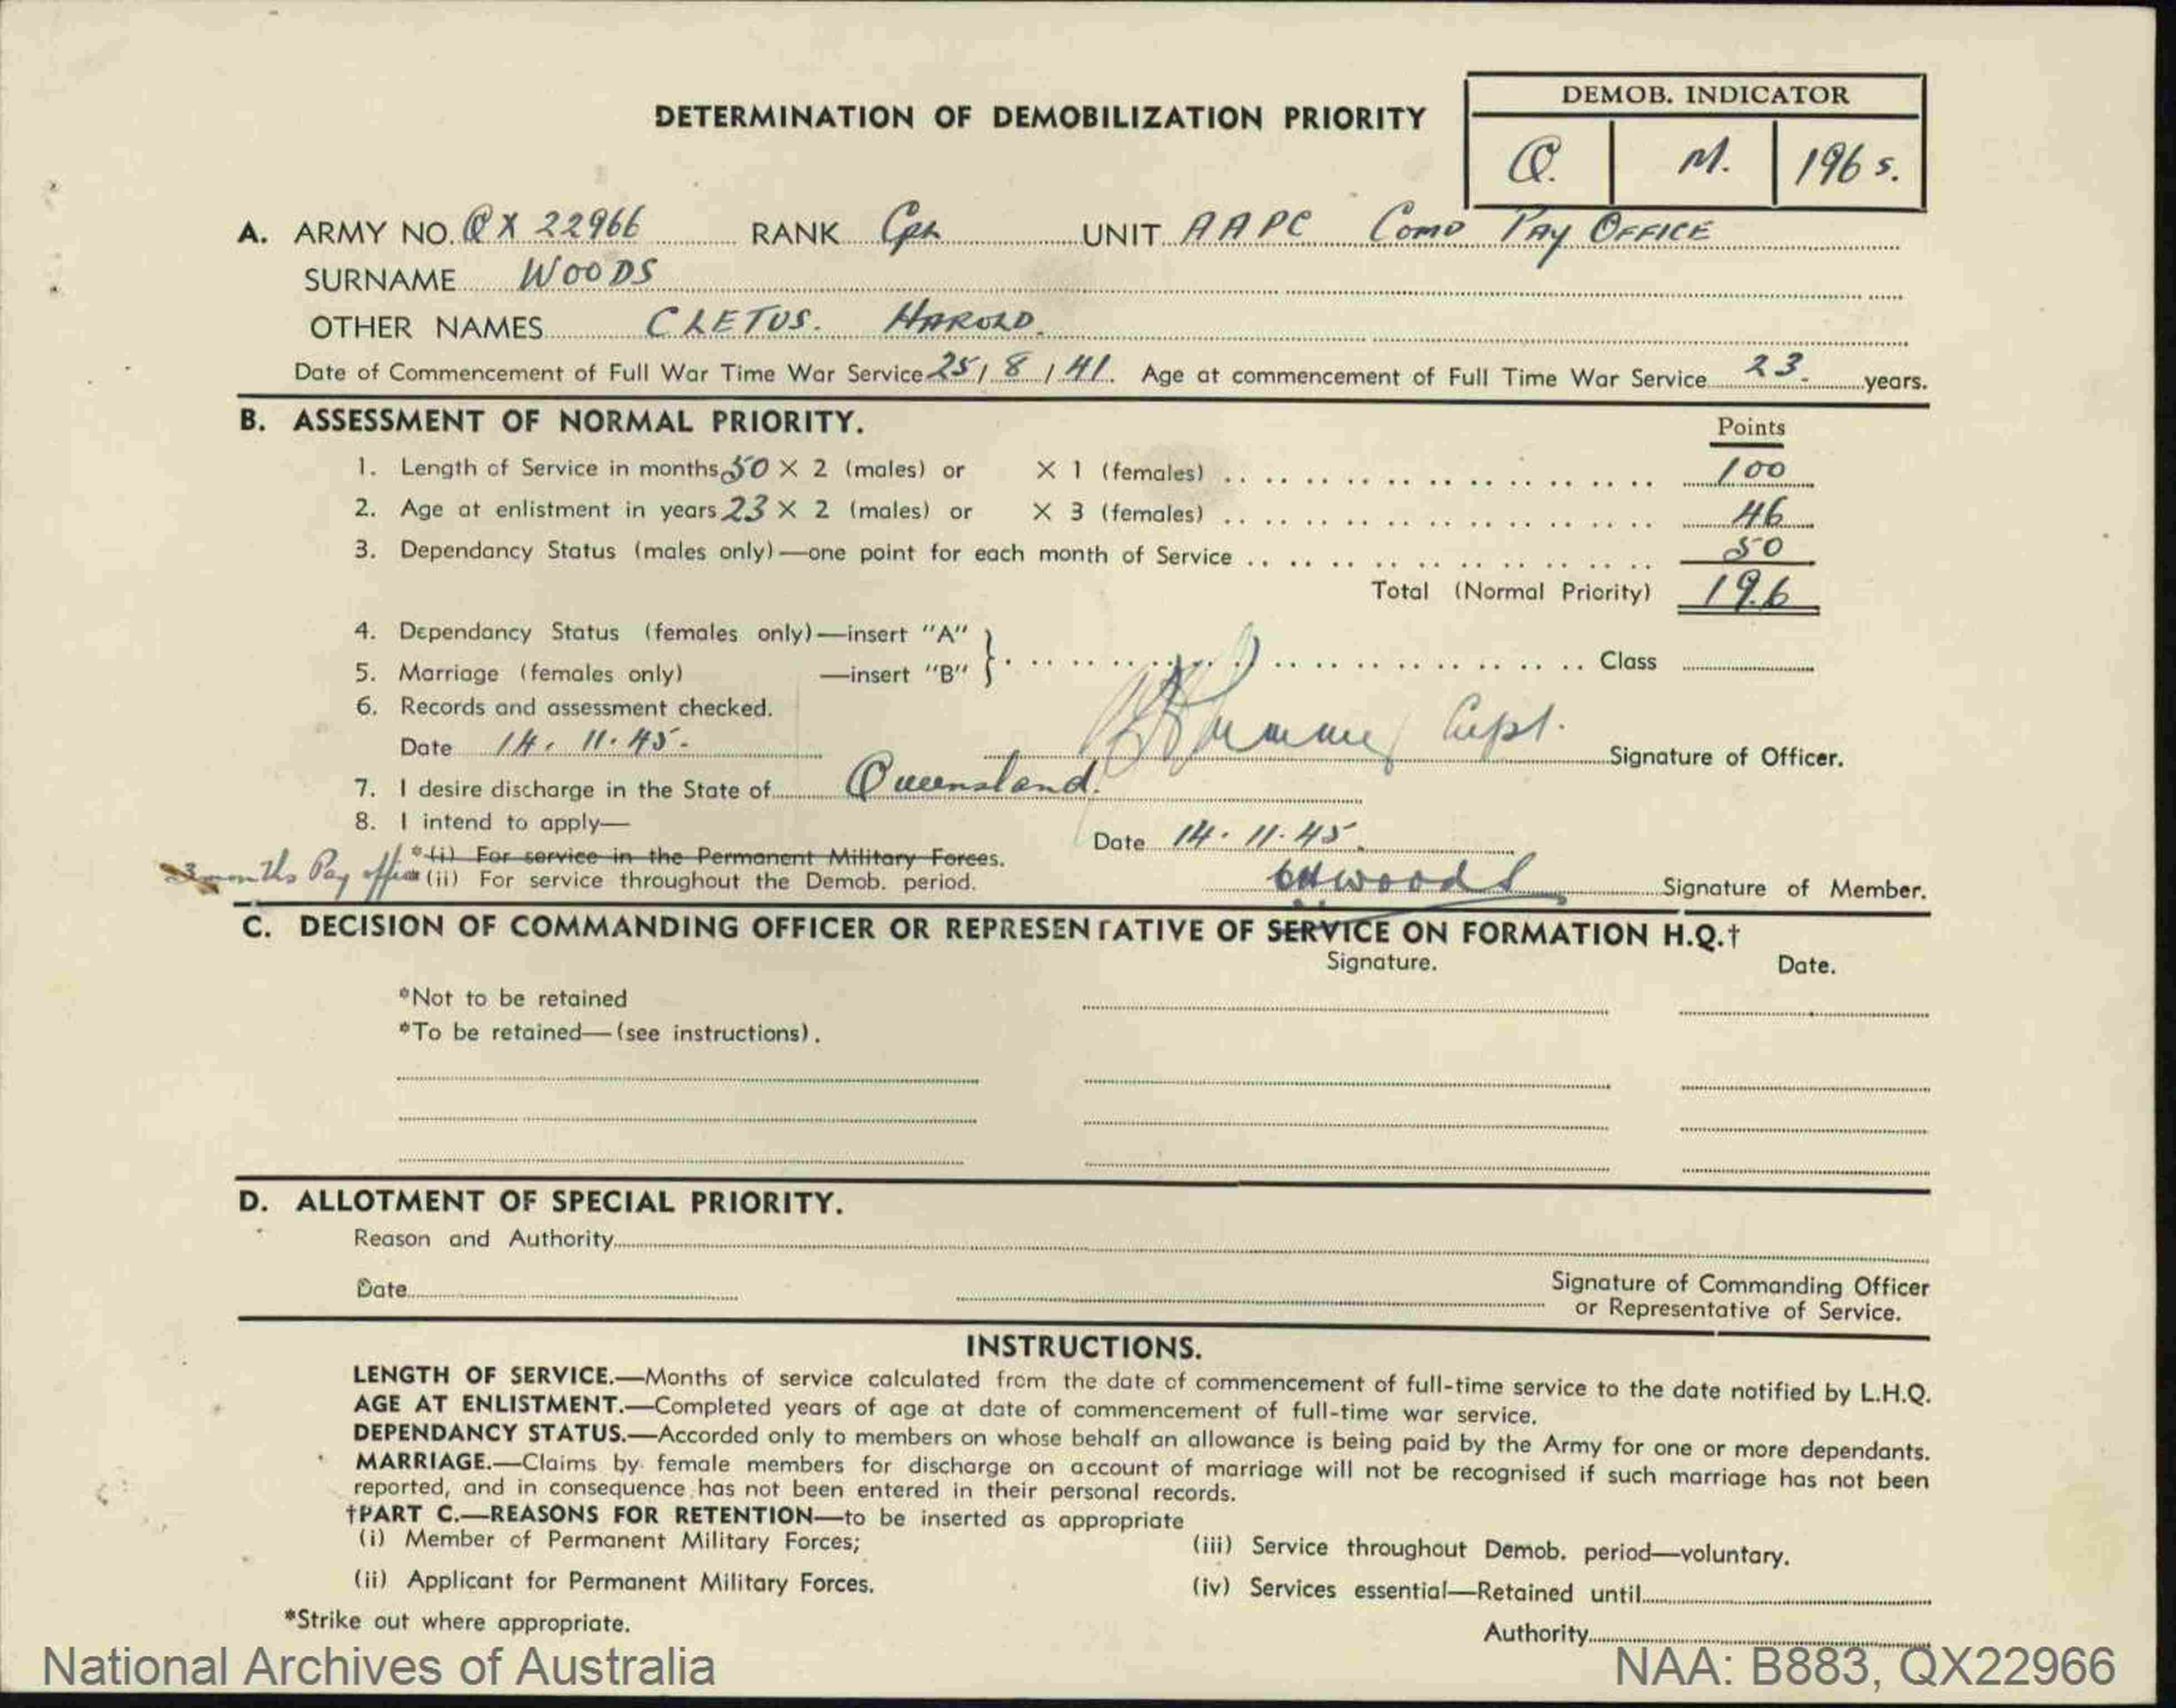 DETERMINATION OF DEMOBILIZATION PRIORITY
DEMOB. INDICATOR
Q. M. 196 s.
A. ARMY NO. QX 22966 RANK Cpl UNIT AAPC Como Pay Office
SURNAME WOODS
OTHER NAMES CLETUS. HAROLD.
Date of Commencement of Full War Time War Service 25/8/41. Age at commencement of Full Time War Service 23. years.
B. ASSESSMENT OF NORMAL PRIORITY.
Points
1. Length of Service in months 50 X 2 (males) or X 1 (females) 100
2. Age at enlistment in years 23 X 2 (males) or X 3 (females) 46
3. Dependancy Status (males only)—one point for each month of Service 50
Total (Normal Priority) 196
4. Dependancy Status (females only)—insert "A"
5. Marriage (females only) —insert "B" } Class
6. Records and assessment checked.
Date 14. 11. 45. Capt. Signature of Officer.
7. I desire discharge in the State of Queensland.
8. I intend to apply—
Date 14. 11. 45.
*(i) For service in the Permanent Military Forces.
3 months Pay office (ii) For service throughout the Demob. period.
CHWoods Signature of Member.
C. DECISION OF COMMANDING OFFICER OR REPRESENTATIVE OF SERVICE ON FORMATION H.Q.†
Signature. Date.
*Not to be retained
*To be retained—(see instructions).
D. ALLOTMENT OF SPECIAL PRIORITY.
Reason and Authority
Date
Signature of Commanding Officer
or Representative of Service.
INSTRUCTIONS.
LENGTH OF SERVICE.—Months of service calculated from the date of commencement of full-time service to the date notified by L.H.Q.
AGE AT ENLISTMENT.—Completed years of age at date of commencement of full-time war service.
DEPENDANCY STATUS.—Accorded only to members on whose behalf an allowance is being paid by the Army for one or more dependants.
MARRIAGE.—Claims by female members for discharge on account of marriage will not be recognised if such marriage has not been
reported, and in consequence has not been entered in their personal records.
†PART C.—REASONS FOR RETENTION—to be inserted as appropriate
(i) Member of Permanent Military Forces;
(iii) Service throughout Demob. period—voluntary.
(ii) Applicant for Permanent Military Forces.
(iv) Services essential—Retained until
*Strike out where appropriate.
Authority
National Archives of Australia
NAA: B883, QX22966